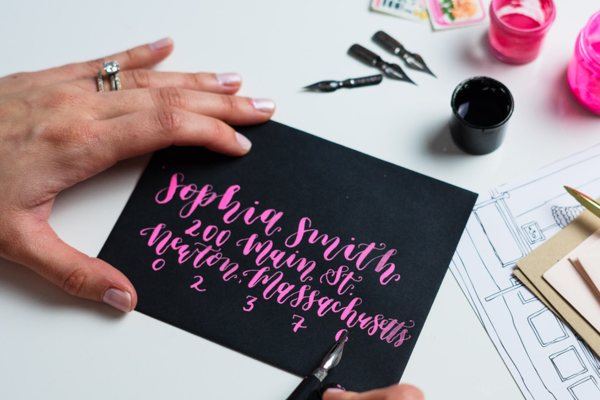 Sophia Smith
200 Main St.
Newton, Massachusetts
0 2 3 7